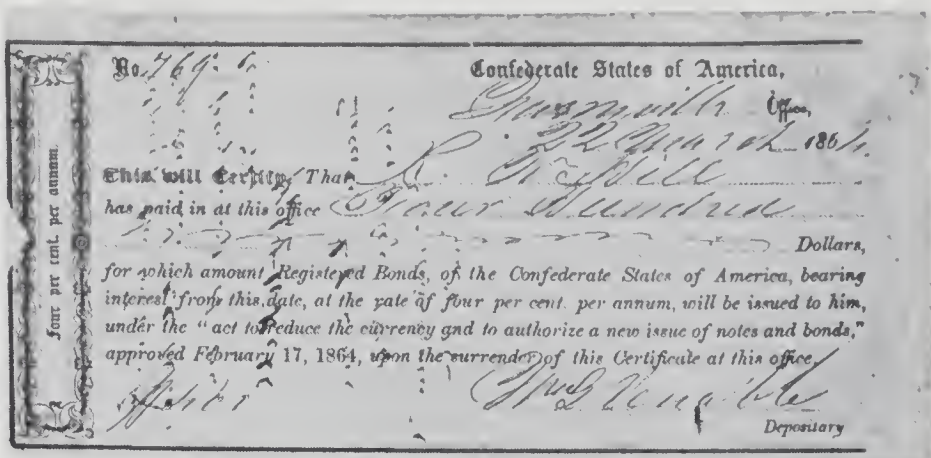 Four per cent. per annum.
No. 769. Confederate States of America,
Office,
22 March 1864.
This will Certify, That R.
has paid in at this office Four Hundred
Dollars,
for which amount Registered Bonds, of the Confederate States of America, bearing
interest from this date, at the rate of four per cent. per annum, will be issued to him,
under the "act to reduce the currency and to authorize a new issue of notes and bonds,"
approved February 17, 1864, upon the surrender of this Certificate at this office.
Venable
Depositary